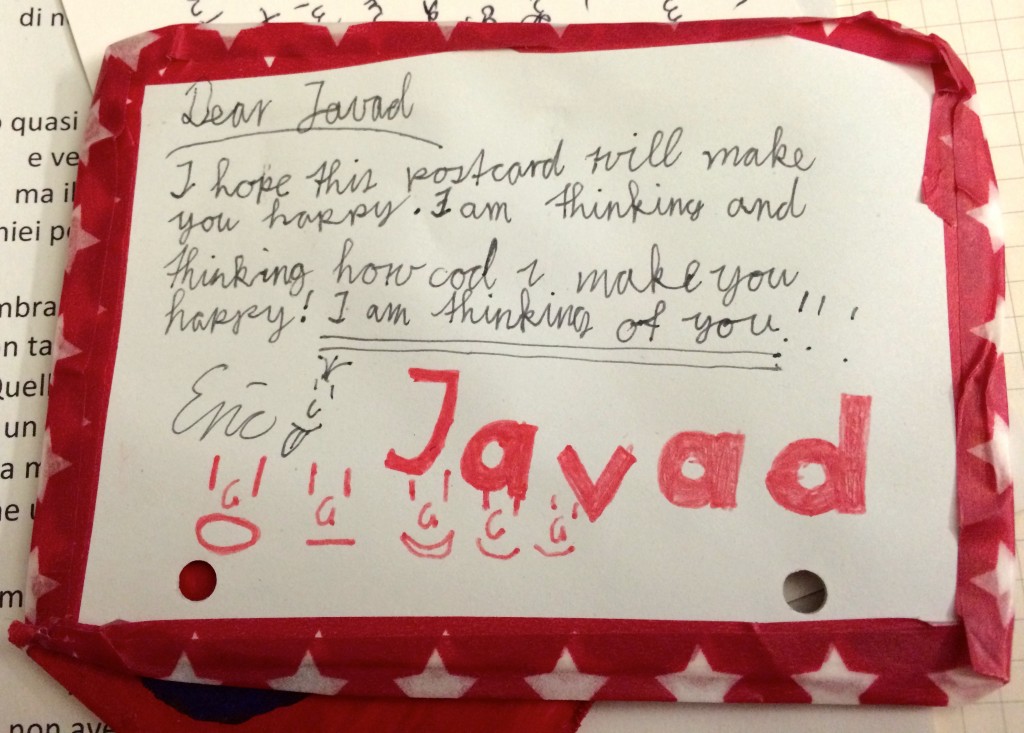 di n
quasi
e ve
ma il
miei pe
mbra
n ta
Quell
un
a m
ne u
m
non ave
Dear Javad
I hope this postcard will make
you happy. I am thinking and
thinking how cod i make you
happy! I am thinking of you!!!
Eric
Javad